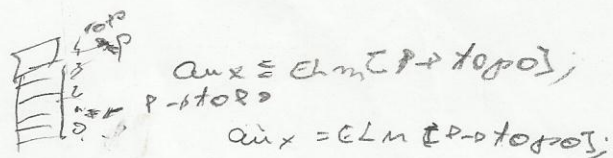 topo
4 → p
3
aux = ELm[P->topo];
2
1 ← P->topo
0
aux = ELm[P->topo];